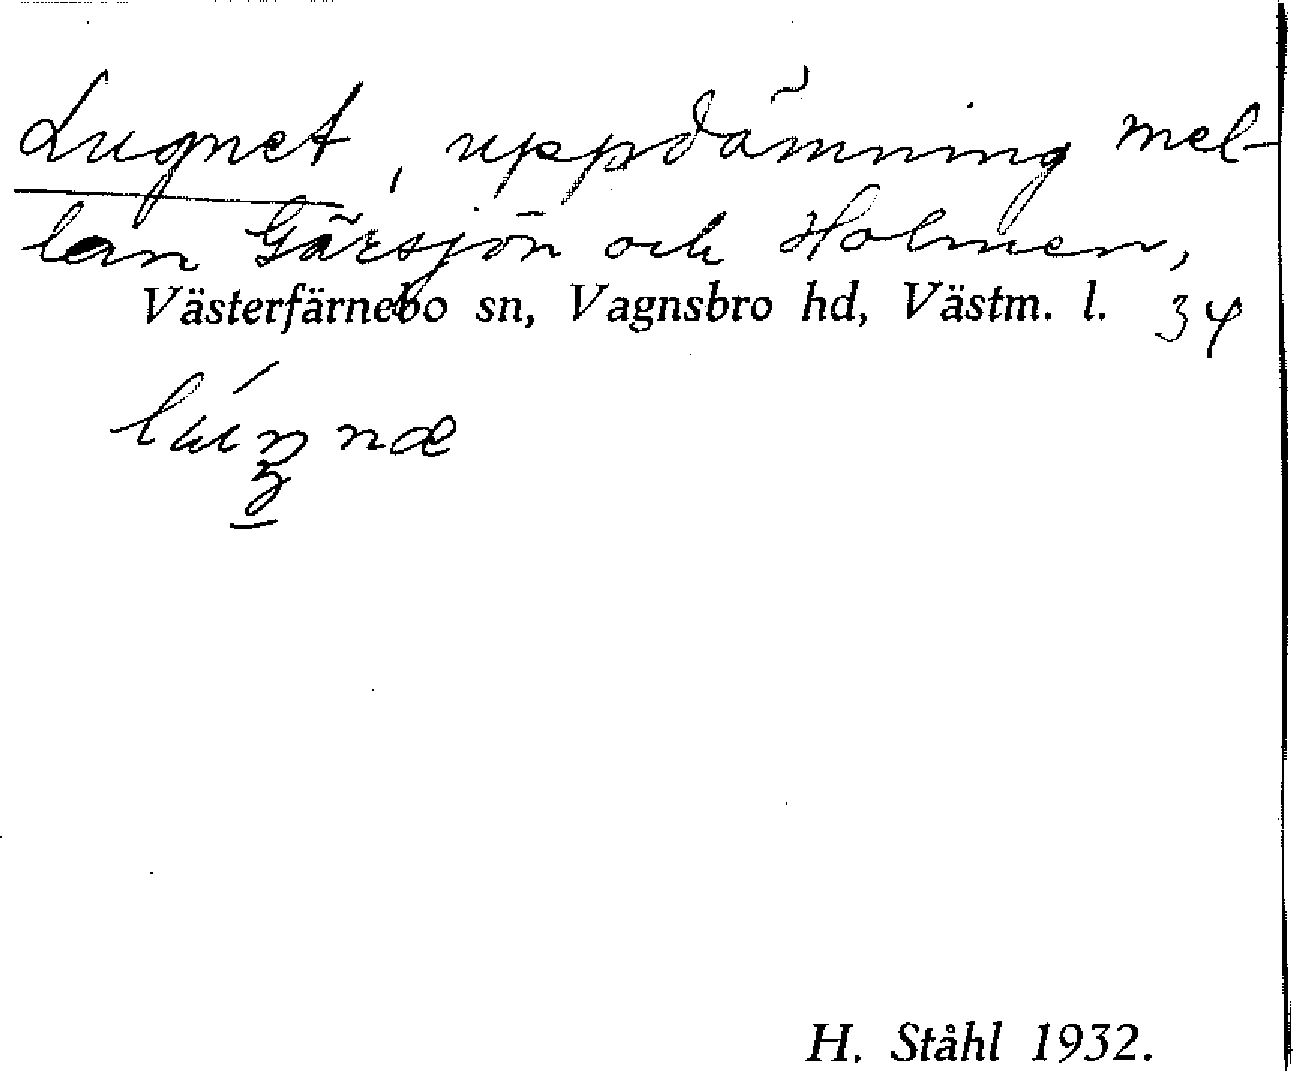 Lugnet, uppdämning mel-
lan Gärsjön och Holmen,
Västerfärnebo sn, Vagnsbro hd, Västm. l. 34
H. Ståhl 1932.